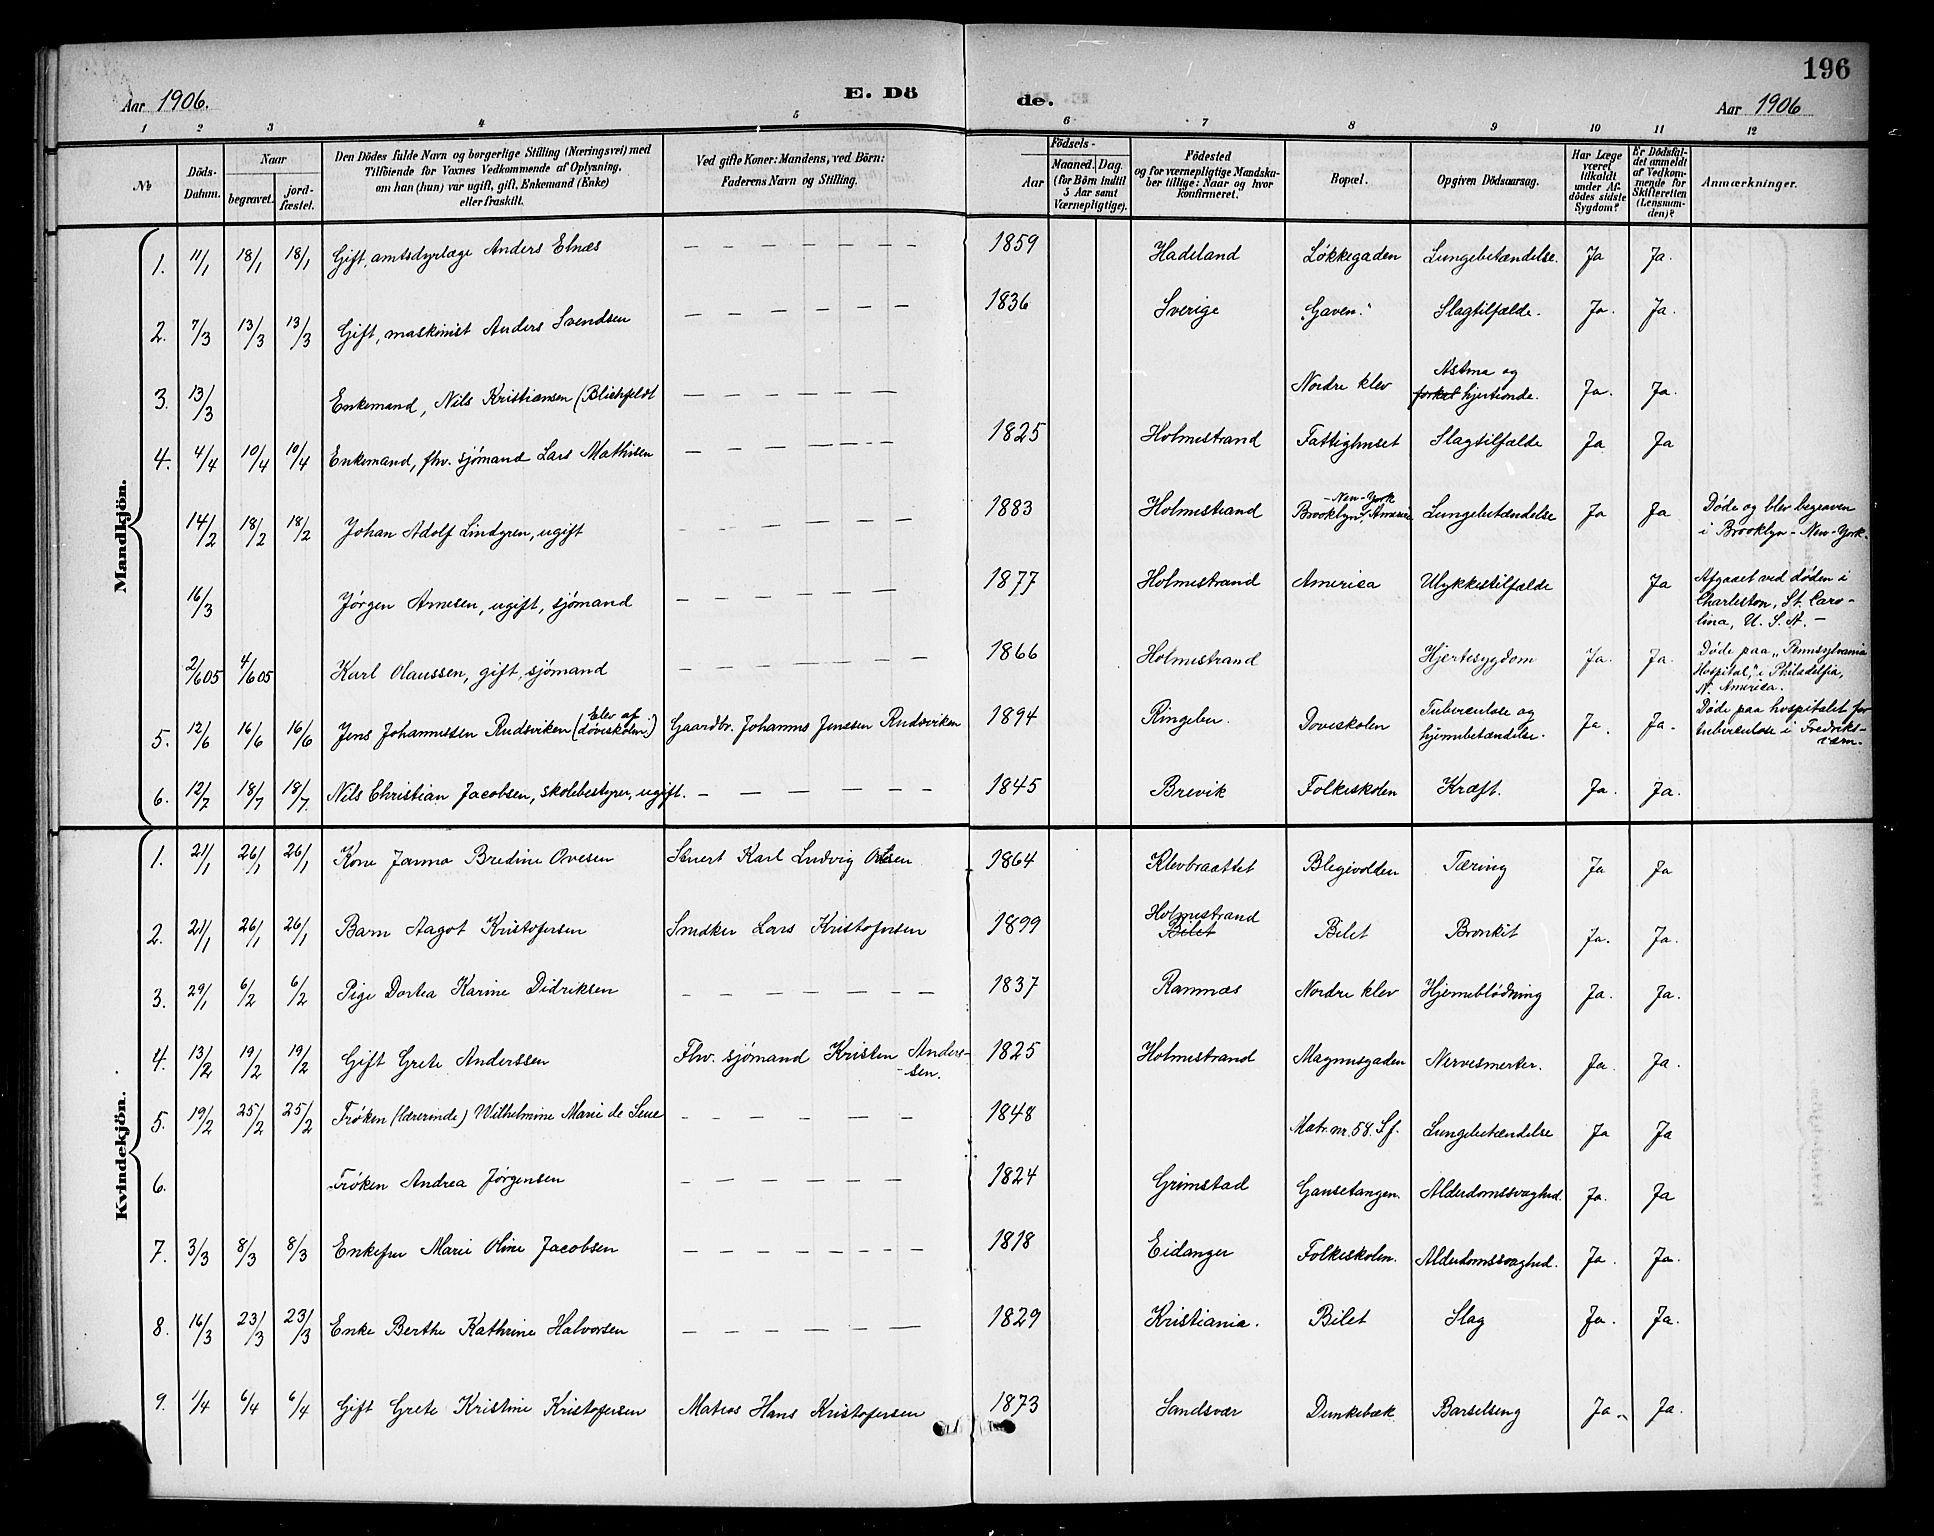 196
Aar 1906. E. Dö de. Aar 1906
1 2 3 4 5 6 7 8 9 10 11 12
No Döds-Datum. Naar begravet. jord-fæstet. Den Dödes fulde Navn og borgerlige Stilling (Næringsvei) med Tilföiende for Voxnes Vedkommende af Oplysning, om han (hun) var ugift, gift, Enkemand (Enke) eller fraskilt. Ved gifte Koner: Mandens, ved Börn: Faderens Navn og Stilling. Födsels- Aar Maaned. Dag. (for Börn indtil 5 Aar samt Værnepligtige). Födested og for værnepligtige Mandskaber tillige: Naar og hvor konfirmeret. Bopæl. Opgiven Dödsaarsag. Har Læge været tilkaldt under Afdödes sidste Sygdom? Er Dödsfaldet anmeldt af Vedkommende for Skifteretten (Lensmanden)? Anmærkninger.
Mandkjön.
1. 11/1 18/1 18/1 Gift, amtsdyrlæge Anders Elnæs — — — — — — — 1859 Hadeland Løkkegaden Lungebetændelse. Ja Ja.
2. 7/3 13/3 13/3 Gift, maskinist Anders Svendsen — — — — — — 1836 Sverige "Gaven." Slagtilfælde. Ja. Ja.
3. 13/3 Enkemand, Nils Kristiansen (Blichfeldt — — — — — — Nordre klev Astma og hjerteonde. Ja. Ja.
4. 4/4 10/4 10/4 Enkemand, fhv. sjømand Lars Mathisen — — — — — — 1825 Holmestrand Fattighuset Slagtilfælde Ja Ja
14/2 18/2 18/2 Johan Adolf Lindgren, ugift — — — — — — 1883 Holmestrand Brooklyn, -New-York America Lungebetændelse Ja Ja Døde og blev begraven
i Brooklyn - New-York.
16/3 Jørgen Arnesen, ugift, sjømand — — — — — — 1877 Holmestrand America Ulykkestilfælde Ja Afgaaet ved døden i
Charleston, St. Caro-
lina, U. S. A. —
2/6 05 4/6 05 Karl Olaussen, gift, sjømand — — — — — — — 1866 Holmestrand Hjertesygdom Ja. Ja. Døde paa "Pennsylvania
Hospital," i Philadelfia,
N. America.
5. 12/6 16/6 16/6 Jens Johannessen Rudsviken (Elev af døveskolen.) Gaardbr. Johannes Jenssen Rudsviken 1894 Ringebu. Doveskolen Tuberculose og hjernebetændelse. Ja. Ja. Døde paa hospitalet for
tuberculose i Fredriks-
værn.
6. 12/7 18/7 18/7. Nils Christian Jacobsen, skolebestyrer, ugift. — — — — — — 1845 Brevik Folkeskolen Kræft. Ja. Ja.
Kvindekjön.
1. 21/1 26/1 26/1 Kone Janna Bredine Ovesen Karl Ludvig 1864 Klevbraattet Blegivolden Tæring Ja Ja
2. 21/1 26/1 26/1 Barn Aagot Kristofersen Snedker Lars Kristofersen 1899 Holmestrand Bilet Bilet Bronkit Ja. Ja.
3. 29/1 6/2 6/2 Pige Dortea Karine Didriksen — — — — — — — 1837 Ramnæs Nordre klev Hjerneblødning Ja. Ja.
4. 13/2 19/2 19/2 Gift Grete Anderssen Fhv. sjømand Kristen Anders-
sen. 1825 Holmestrand Magnusgaden Nervesmerter. Ja. Ja.
5. 19/2 25/2 25/2 Frøken (lærerinde) Wilhelmine Marie de Seue — — — — — — 1848 Matr. nr. 58. Sf. Lungebetændelse Ja Ja
6. Frøken Andrea Jørgensen — — — — — — 1824 Grimstad Gausetangen. Alderdomssvaghed. Ja. Ja
7. 3/3 8/3 8/3 Enkefru Marie Oline Jacobsen — — — — — — — 1818 Eidanger Folkeskolen. Alderdomssvaghed. Ja. Ja.
8. 16/3 23/3 23/3 Enke Berthe Kathrine Halvorsen — — — — — — 1829 Kristiania. Bilet Slag Ja. Ja.
9. 1/4 6/4 6/4 Gift Grete Kristine Kristofersen Matros Hans Kristofersen 1873 Sandsvær Dunkebæk Barselseng Ja. Ja.